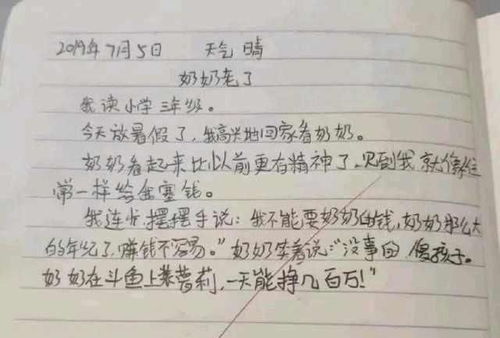 2019年7月5日 天气 晴
奶奶老了
我读小学三年级。
今天放暑假了,我高兴地回家看奶奶。
奶奶看起来比以前更有精神了,见到我就像往
常一样给我塞钱。
我连忙摆摆手说:我不能要奶奶的钱,奶奶那么大
的年纪了,赚钱不容易。"奶奶笑着说:"没事的 傻孩子。
奶奶在斗鱼上装萝莉,一天能挣几百万!"